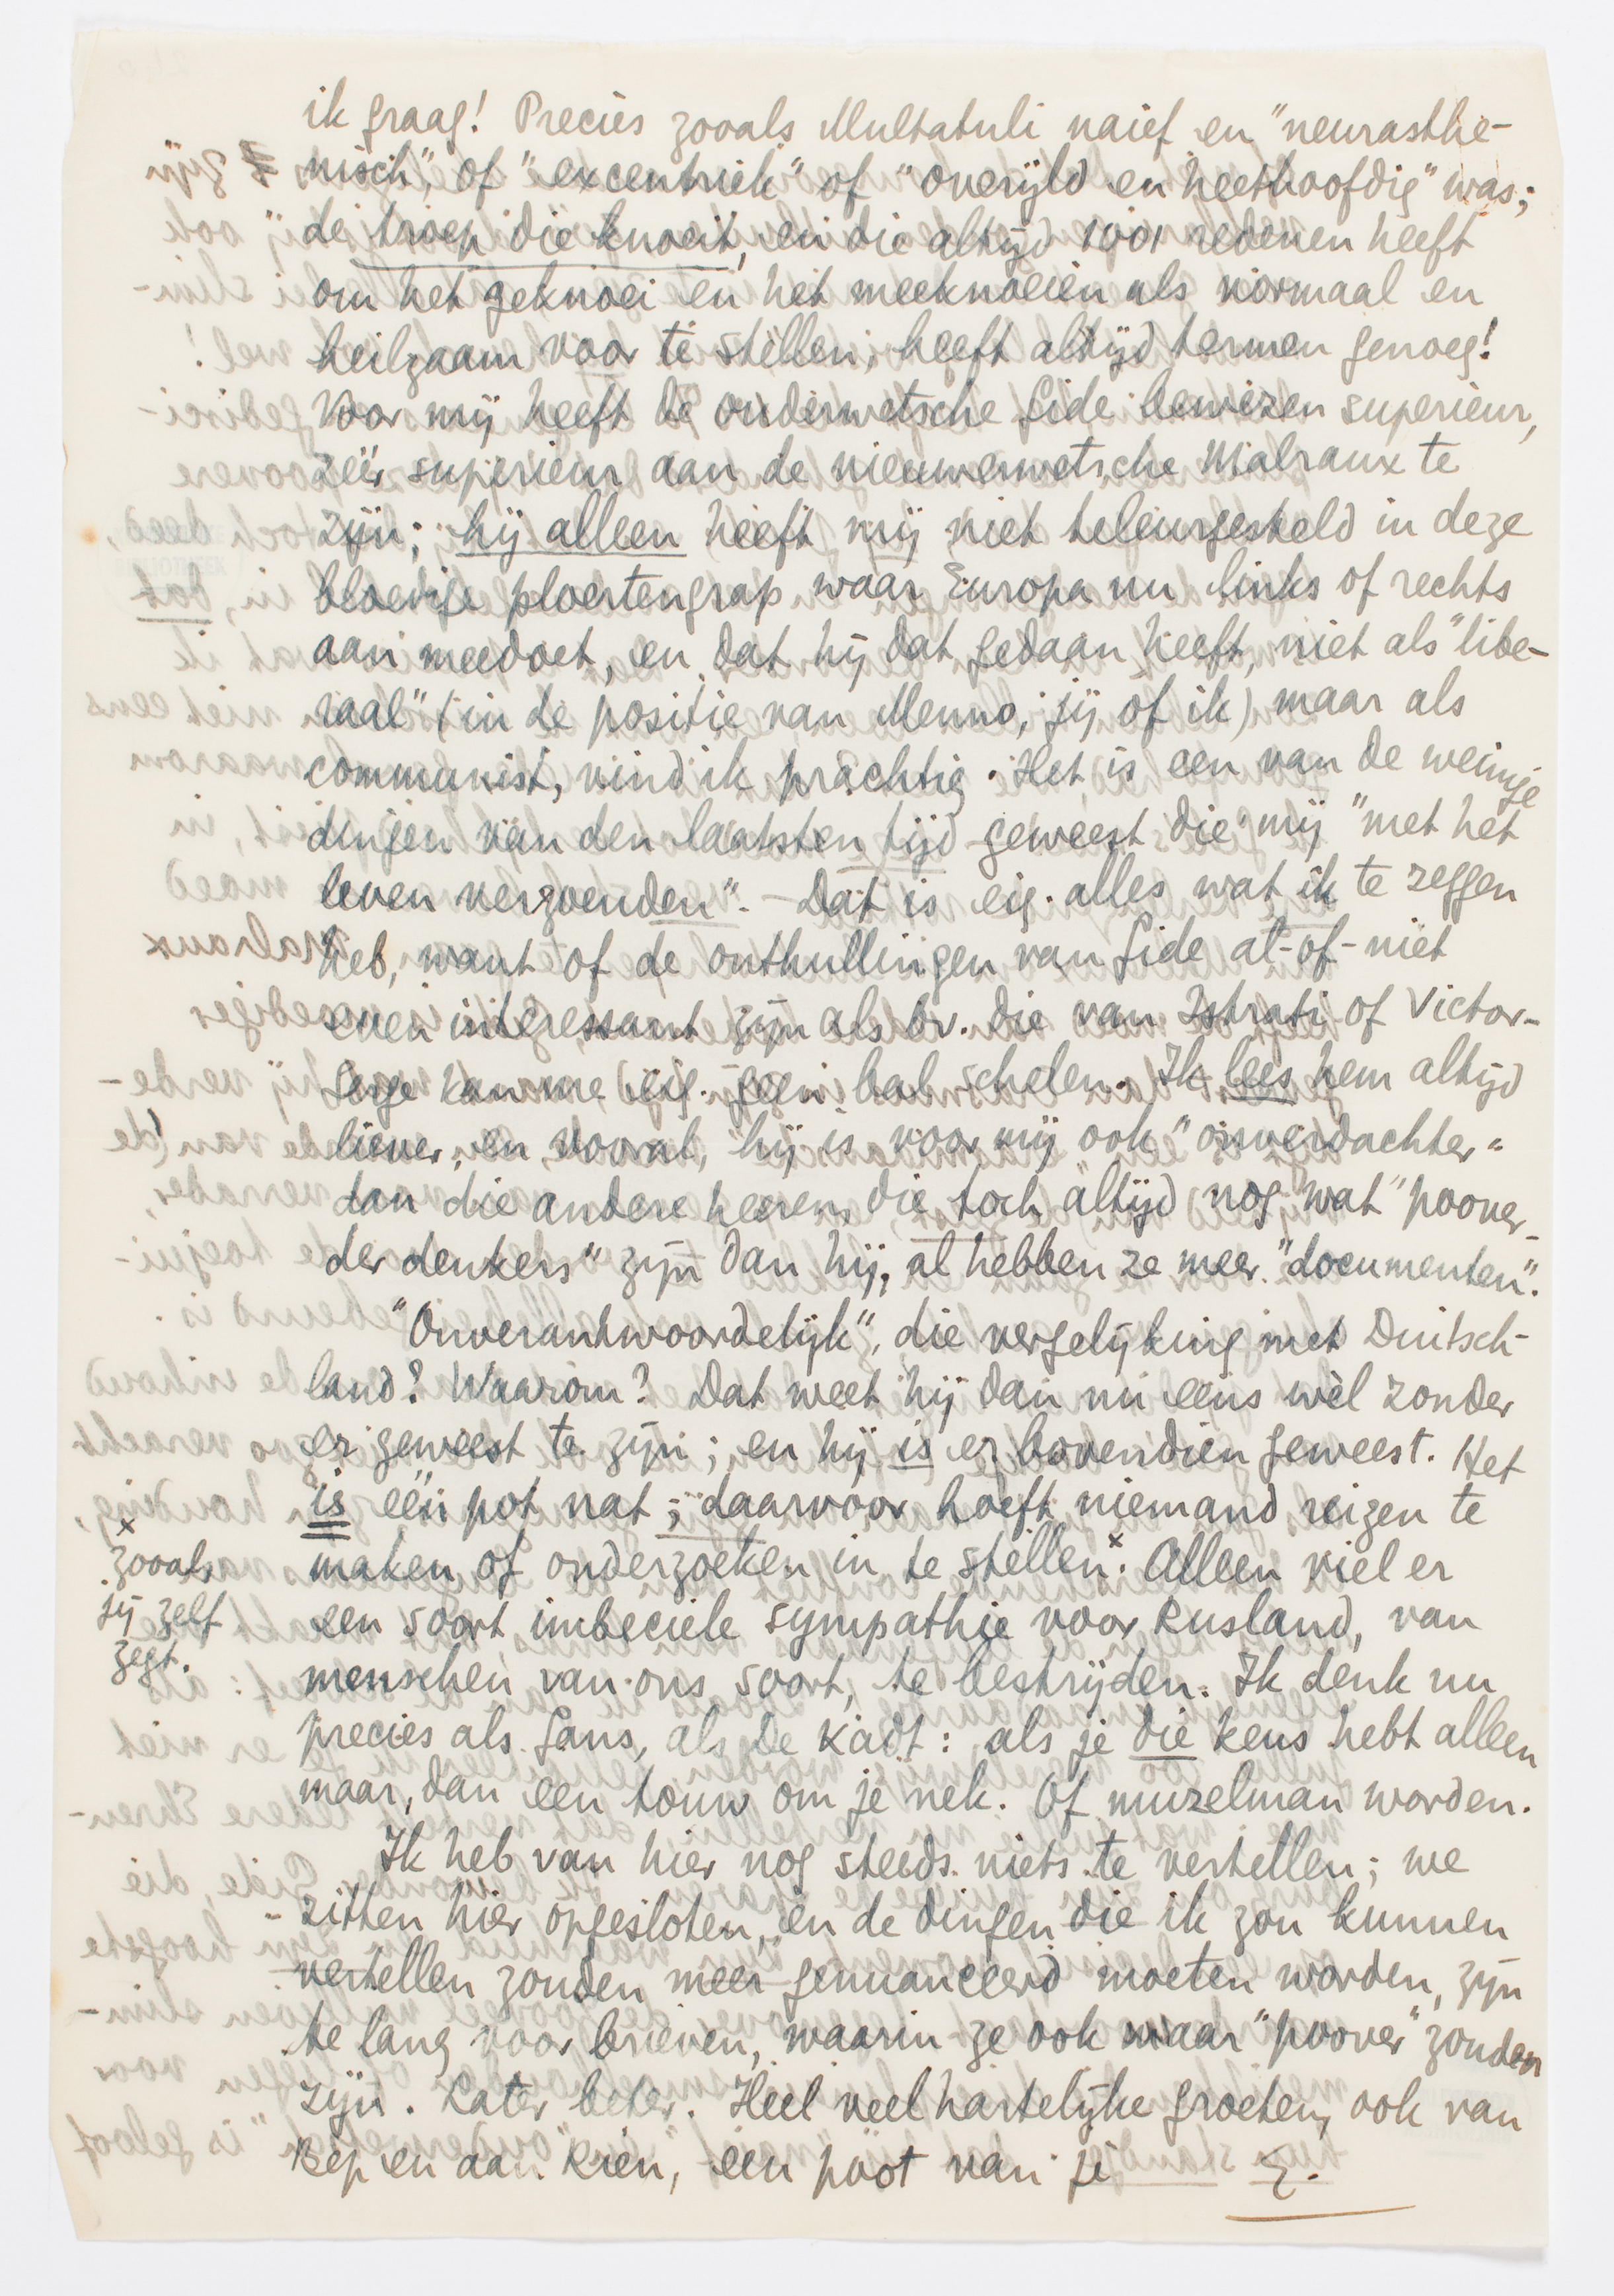 ik graag! Precies zooals Multatuli naief en "neurasthe-
nisch", of "excentriek" of "overijld en heethoofdig" was;
de troep die knoeit, en die altijd 1001 redenen heeft
om het geknoei en het meeknoeien als normaal en
heilzaam voor te stellen, heeft altijd termen genoeg!
Voor mij heeft de ouderwetsche Gide bewezen superieur,
zéér superieur aan de nieuwerwetsche Malraux te
zijn; hij alleen heeft mij niet teleurgesteld in deze
bloedige ploertengrap waar Europa nu links of rechts
aan meedoet, en dat hij dat gedaan heeft, niet als "libe-
raal" (in de positie van Menno, jij of ik) maar als
communist, vind ik prachtig. Het is een van de weinige
dingen van den laatsten tijd geweest die mij "met het
leven verzoenden". - Dat is eig. alles wat ik te zeggen
heb, want of de onthullingen van Gide al-of-niet
even interessant zijn als bv. die van Istrati of Victor-
Serge kan me eig. geen bal schelen. Ik lees hem altijd
liever, en vooral, hij is voor mij ook "onverdachter"
dan die andere heeren, die toch altijd nog wat "poover-
der denkers" zijn dan hij, al hebben ze meer "documenten".
"Onverantwoordelijk", die vergelijking met Duitsch-
land? Waarom? Dat weet hij dan nu eens wèl zonder
er geweest te zijn; en hij is er bovendien geweest. Het
is één pot nat; daarvoor hoeft niemand reizen te
maken of onderzoeken in te stellen.x Alleen viel er
een soort imbeciele sympathie voor Rusland, van
menschen van ons soort, te bestrijden. Ik denk nu
precies als Gans, als De Kadt: als je die keus hebt alleen
maar, dan een touw om je nek. Of muzelman worden.
Ik heb van hier nog steeds niets te vertellen; we
zitten hier opgesloten, en de dingen die ik zou kunnen
vertellen zouden meer genuanceerd moeten worden, zijn
te lang voor brieven, waarin ze ook maar "poover" zouden
zijn. Later beter. Heel veel hartelijke groeten, ook van
Bep en aan Rien, een poot van je E.
x
zooals
jij zelf
zegt.